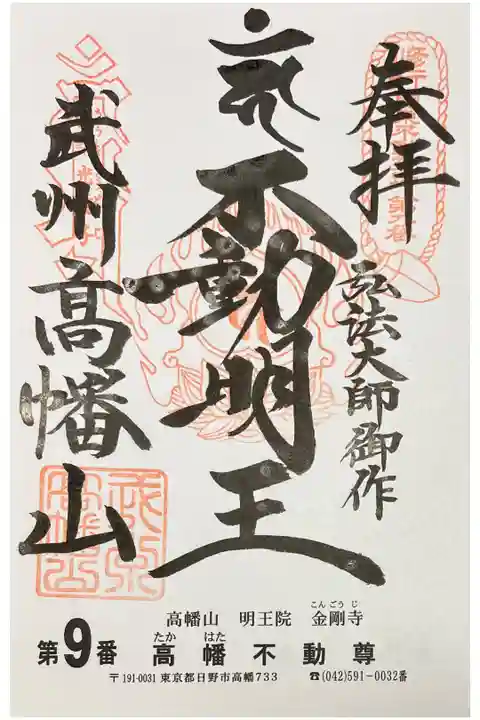 奉拝
弘法大師御作
不動明王
武州高幡山
高幡山　明王院　金剛寺
こんごうじ
第9番　高幡不動尊
たか　はた
〒191-0031 東京都日野市高幡733　☎(042)591-0032番